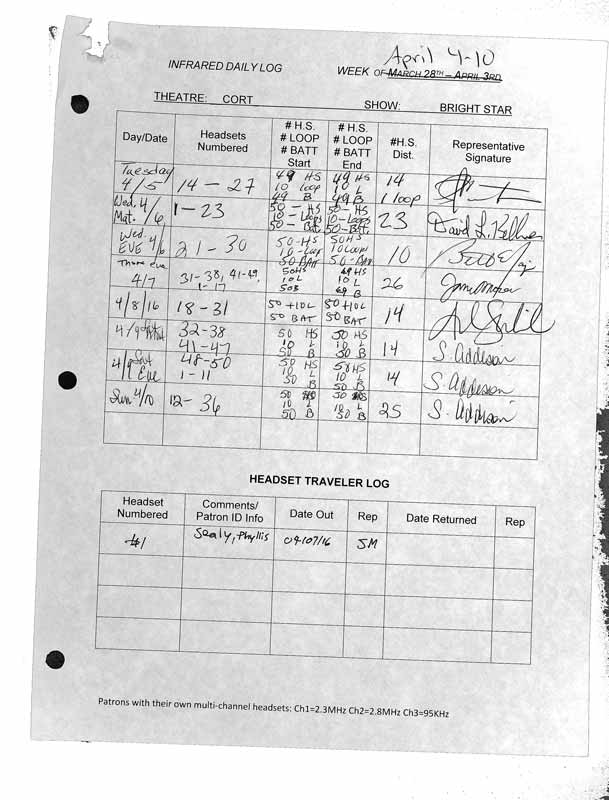 April 4-10
INFRARED DAILY LOG WEEK OF MARCH 28TH – APRIL 3RD
THEATRE: CORT SHOW: BRIGHT STAR
Day/Date Headsets Numbered # H.S. # LOOP # BATT Start # H.S. # LOOP # BATT End #H.S. Dist. Representative Signature
Tuesday 4/5 14 – 27 49 HS 10 loop 49 B 49 HS 10 L 49 B 14 1 loop
Wed. 4/6 Mat. 1 – 23 50 – HS 10 – Loops 50 – Bat. 50 – HS 10 – Loops 50 – Bat. 23 David L.
Wed. EVE 4/6 21 – 30 50-HS 10-Loop 50 BATT 50HS 10 Loop 50-BATT 10
Thurs eve 4/7 31-38, 41-49, 1-17 50HS 10L 50B 49 HS 10 L 49 B 26
4/8/16 18 – 31 50 + 10L 50 BAT 50 + 10L 50 BAT 14
4/9 32-38 41-47 50 HS 10 L 50 B 50 HS 10 L 50 B 14 S. Addison
4/9 Sat Eve 48-50 1-11 50 HS 10 L 50 B 50 HS 10 L 50 B 14 S. Addison
Sun 4/10 12 – 36 50 HS 10 L 50 B 50 HS 10 L 50 B 25 S. Addison
HEADSET TRAVELER LOG
Headset Numbered Comments/ Patron ID Info Date Out Rep Date Returned Rep
#1 Sealy, Phyllis 04/07/16 JM
Patrons with their own multi-channel headsets: Ch1=2.3MHz Ch2=2.8MHz Ch3=95KHz